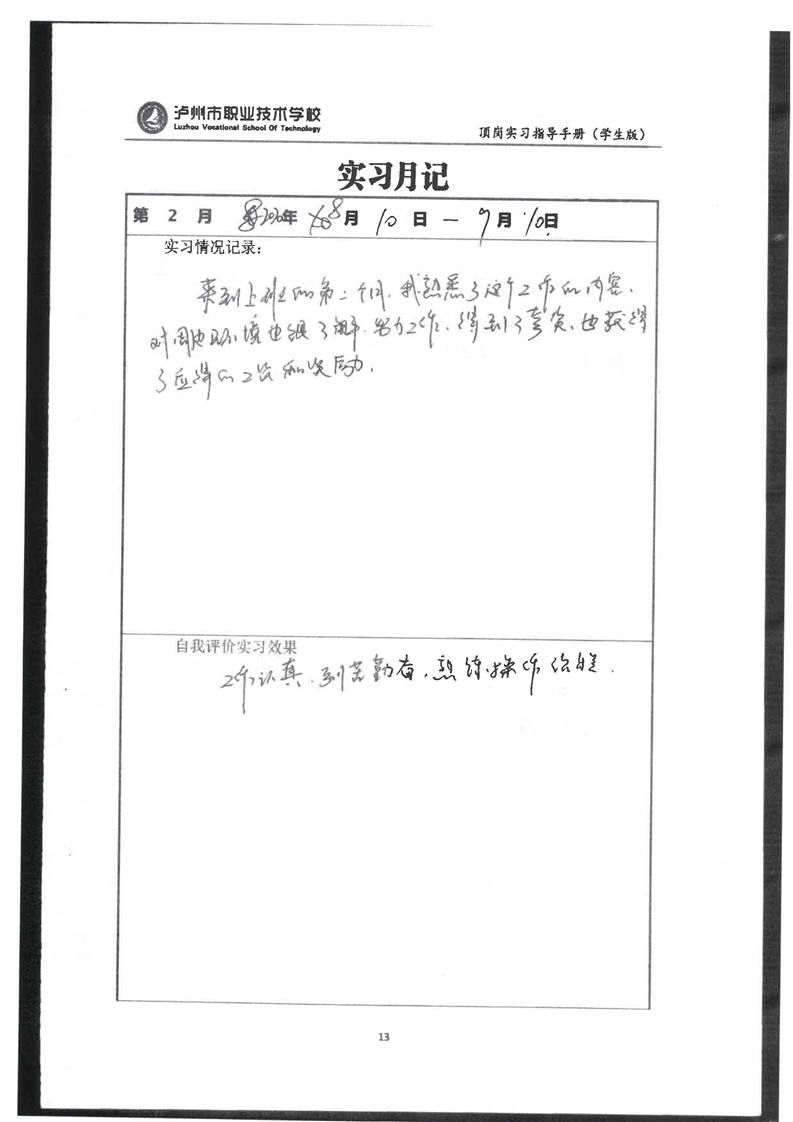 泸州市职业技术学校
Luzhou Vocational School Of Technology
顶岗实习指导手册（学生版）
实习月记
第 2 月 2020年 8月 10 日 — 9月 10日
实习情况记录：
来到上班的第二个月，我熟悉了这个工作的内容，
对周边环境也很了解，努力工作，得到了夸奖，也获得
了应得的工资和奖励。
自我评价实习效果
工作认真，刻苦勤奋，熟练操作
13